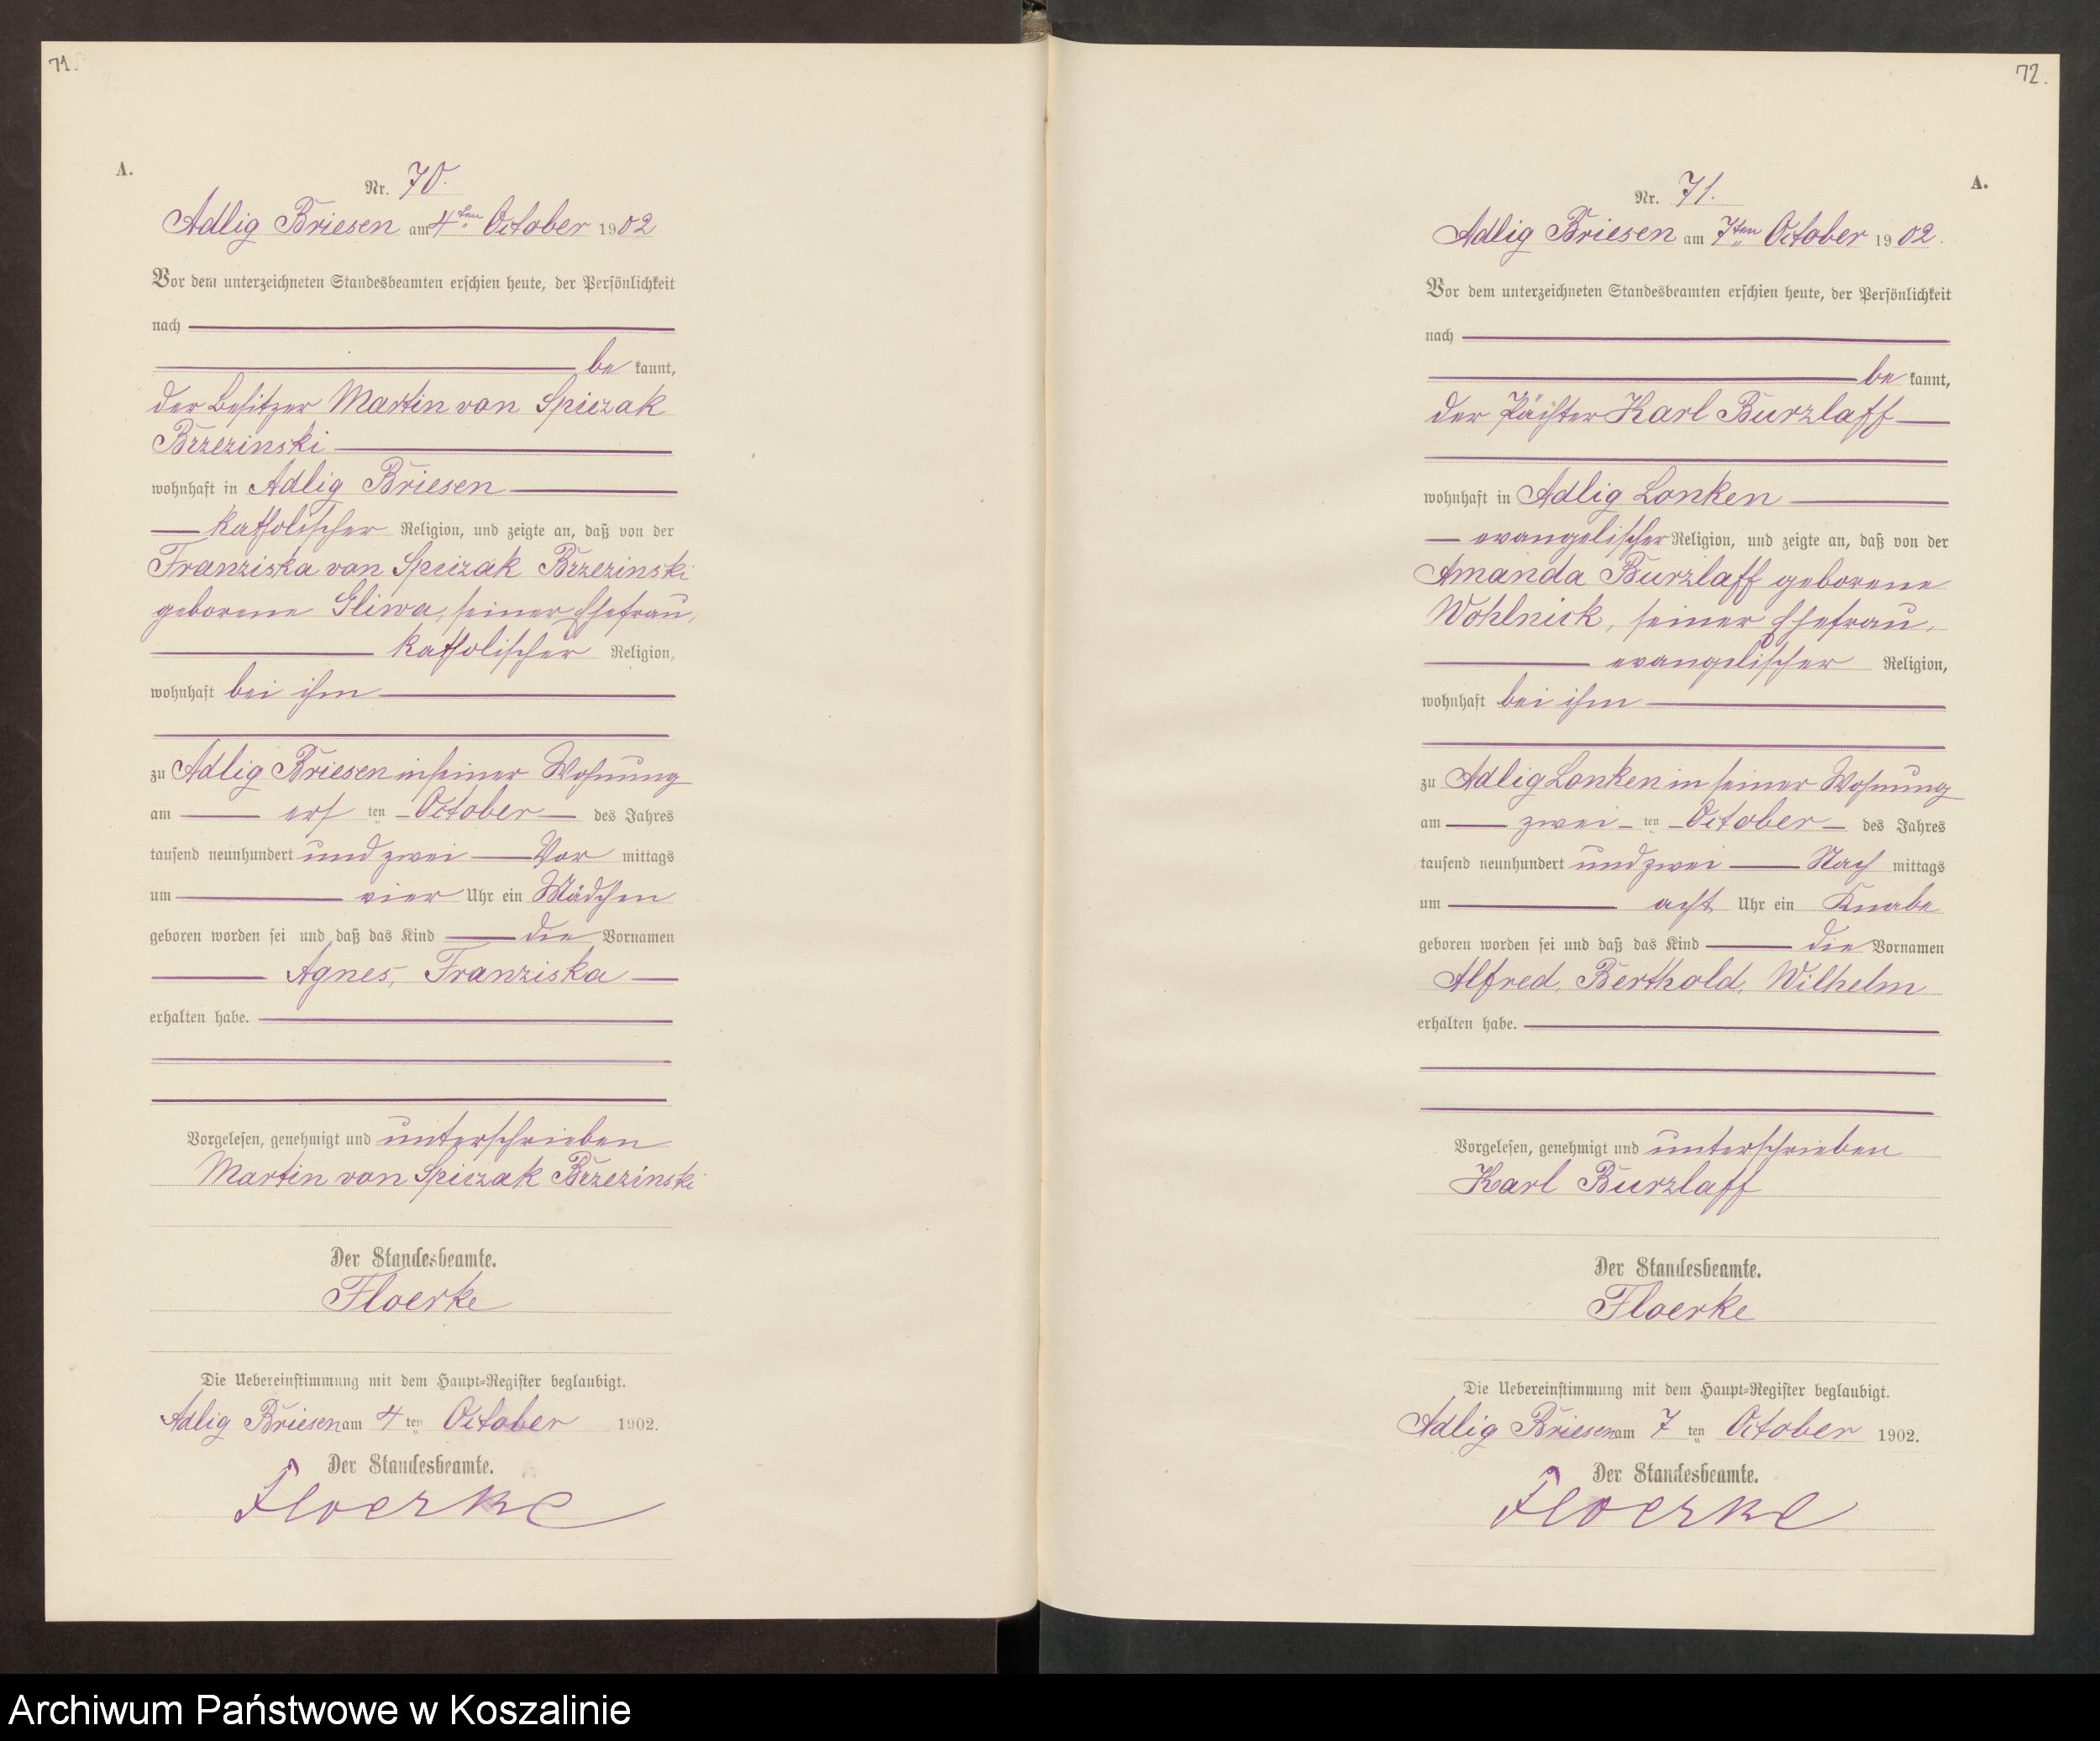 71.
A.
Nr. 70.
Adlig Briesen am 4ten October 1902
Vor dem unterzeichneten Standesbeamten erschien heute, der Persönlichkeit
nach
be kannt,
der Besitzer Martin von Spiczak
Brzezinski
wohnhaft in Adlig Briesen
katholischer Religion, und zeigte an, daß von der
Franziska von Spiczak Brzezinski
geborene Gliwa, seiner Ehefrau,
katholischer Religion,
wohnhaft bei ihm
zu Adlig Briesen in seiner Wohnung
am ers ten October des Jahres
tausend neunhundert und zwei Vor mittags
um vier Uhr ein Mädchen
geboren worden sei und daß das Kind die Vornamen
Agnes, Franziska
erhalten habe.
Vorgelesen, genehmigt und unterschrieben
Martin von Spiczak Brzezinski
Der Standesbeamte.
Floerke
Die Uebereinstimmung mit dem Haupt-Register beglaubigt.
Adlig Briesen am 4 ten October 1902.
Der Standesbeamte.
Floerke
72.
A.
Nr. 71.
Adlig Briesen am 7ten October 1902.
Vor dem unterzeichneten Standesbeamten erschien heute, der Persönlichkeit
nach
be kannt,
der Pächter Karl Burzlaff
wohnhaft in Adlig Lonken
evangelischer Religion, und zeigte an, daß von der
Amanda Burzlaff geborene
Wohlnick, seiner Ehefrau,
evangelischer Religion,
wohnhaft bei ihm
zu Adlig Lonken in seiner Wohnung
am zwei ten October des Jahres
tausend neunhundert und zwei Nach mittags
um acht Uhr ein Knabe
geboren worden sei und daß das Kind die Vornamen
Alfred, Berthold, Wilhelm
erhalten habe.
Vorgelesen, genehmigt und unterschrieben
Karl Burzlaff
Der Standesbeamte.
Floerke
Die Uebereinstimmung mit dem Haupt-Register beglaubigt.
Adlig Briesen am 7 ten October 1902.
Der Standesbeamte.
Floerke
Archiwum Państwowe w Koszalinie